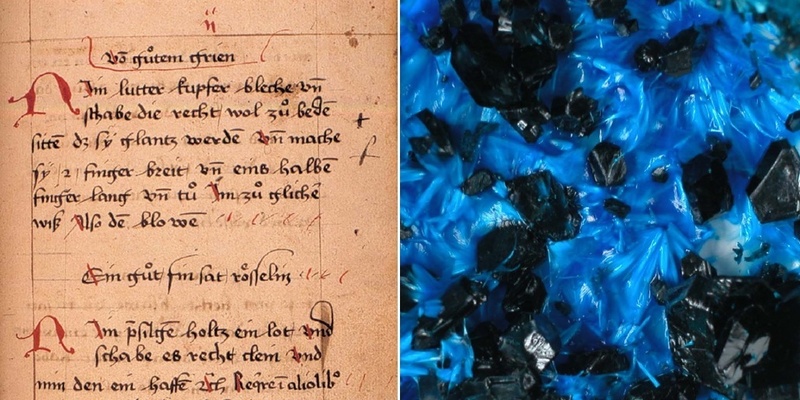 ij
võ gůtem grien
Nim lutter kupfer bleche vñ
schabe die recht wol zů bedē
sittē dz sy glantz werdē vñ mache
sy 2 finger breit vñ eins halbē
finger lang vñ tů Im zů glichē
wiß Also dē blowē
Ein gůt sin sat rösselin
Nim holtz ein lot vnd
schabe es recht clein vnd
nim den ein haffē